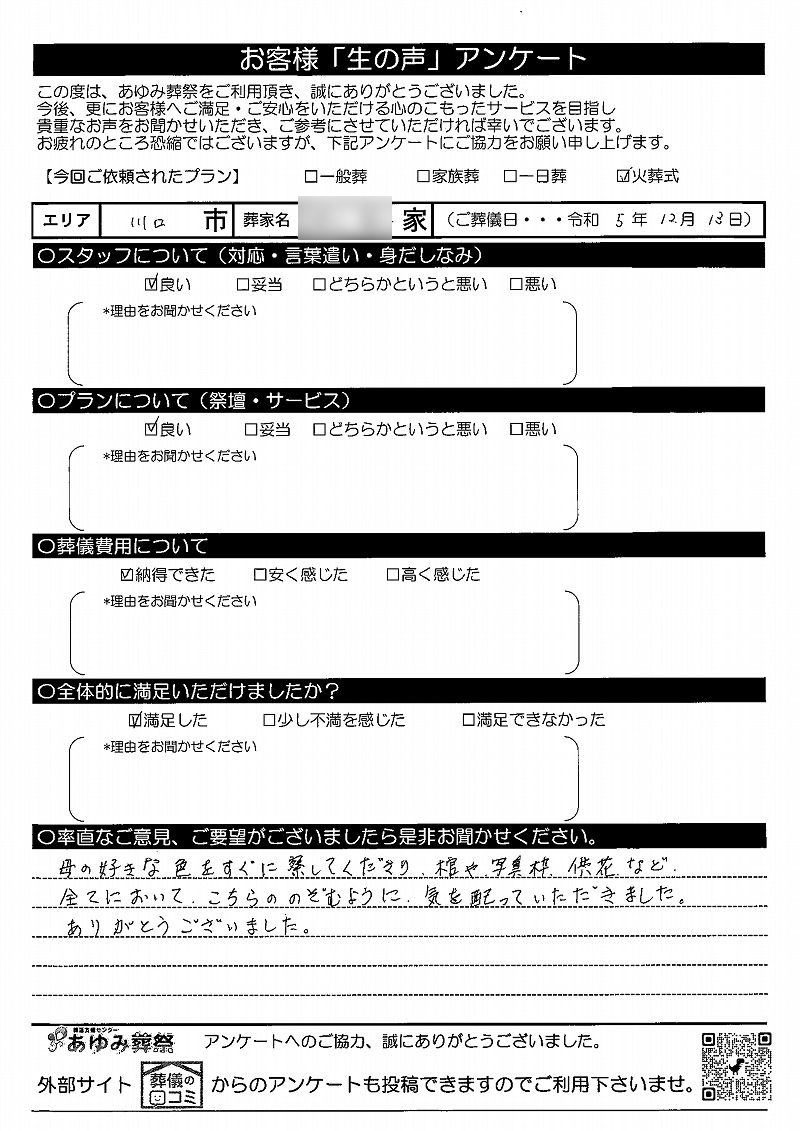 お客様「生の声」アンケート
この度は、あゆみ葬祭をご利用頂き、誠にありがとうございました。
今後、更にお客様へご満足・ご安心をいただける心のこもったサービスを目指し
貴重なお声をお聞かせいただき、ご参考にさせていただければ幸いでございます。
お疲れのところ恐縮ではございますが、下記アンケートにご協力をお願い申し上げます。
【今回ご依頼されたプラン】 □一般葬 □家族葬 □一日葬 ☑火葬式
エリア 川口 市 葬家名 家 （ご葬儀日・・・令和 5年 12月 13日）
〇スタッフについて（対応・言葉遣い・身だしなみ）
☑良い □妥当 □どちらかというと悪い □悪い
*理由をお聞かせください
〇プランについて（祭壇・サービス）
☑良い □妥当 □どちらかというと悪い □悪い
*理由をお聞かせください
〇葬儀費用について
☑納得できた □安く感じた □高く感じた
*理由をお聞かせください
〇全体的に満足いただけましたか？
☑満足した □少し不満を感じた □満足できなかった
*理由をお聞かせください
〇率直なご意見、ご要望がございましたら是非お聞かせください。
母の好きな色をすぐに察してくださり、棺や、写真枠、供花など、
全てにおいて、こちらののぞむように、気を配っていただきました。
ありがとうございました。
葬儀支援センター
あゆみ葬祭 アンケートへのご協力、誠にありがとうございました。
外部サイト 葬儀の口コミ からのアンケートも投稿できますのでご利用下さいませ。